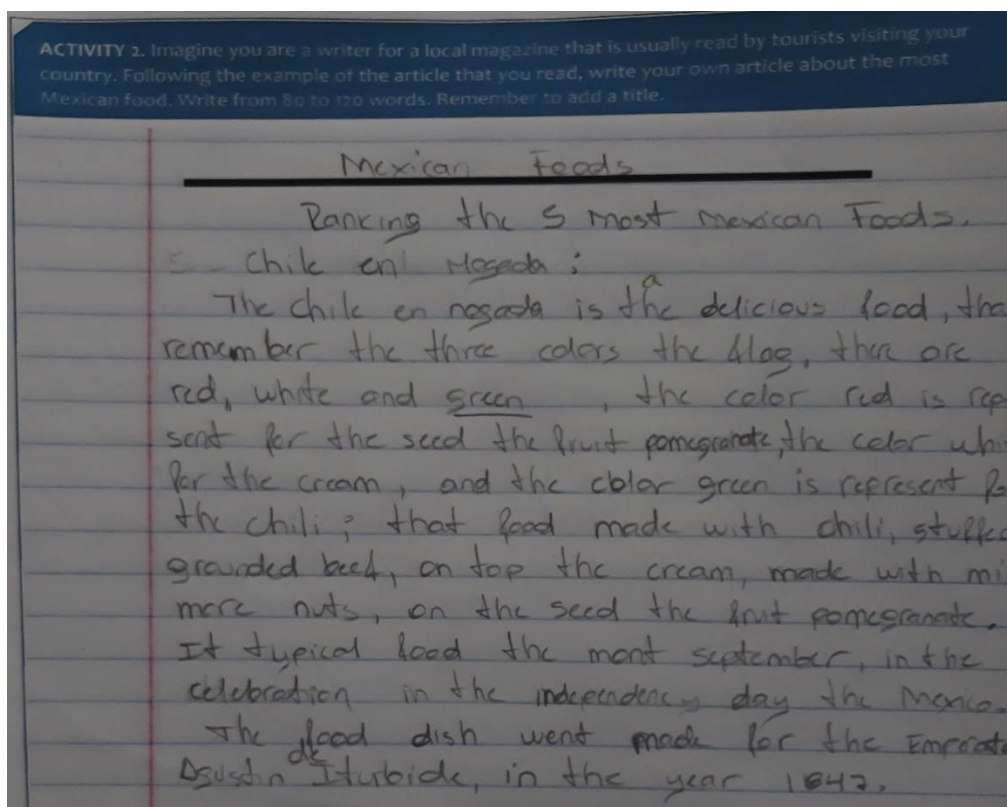 ACTIVITY 2. Imagine you are a writer for a local magazine that is usually read by tourists visiting your
country. Following the example of the article that you read, write your own article about the most
Mexican food. Write from 80 to 120 words. Remember to add a title.
Mexican Foods
Ranking the 5 most mexican Foods.
5 - Chile en Nogada :
The chile en nogada is the a delicious food, tha
remember the three colors the flag, ther are
red, white and green , the color red is rep
sent for the seed the fruit pomegranate, the color whi
for the cream, and the color green is represent fo
the chili; that food made with chili, stuffed
grounded beef, on top the cream, made with mi
more nuts, on the seed the fruit pomegranate.
It typical food the mont september, in the
celebration in the independency day the Mexico.
The food dish went made for the Emperat
Agustin de Iturbide, in the year 1842.